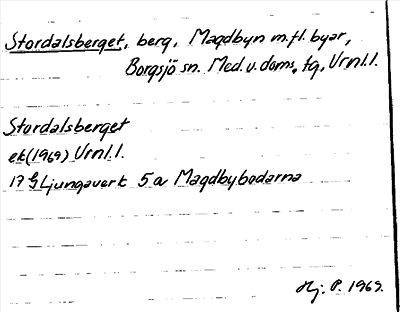 Stordalsberget, berg, Magdbyn m.fl. byar,
Borgsjö sn. Med. v. doms. tg, Vrnl. l.
Stordalsberget
ek(1969) Vrnl. l.
17 G Ljungaverk 5 a Magdbybodarna
Hj. P. 1969.